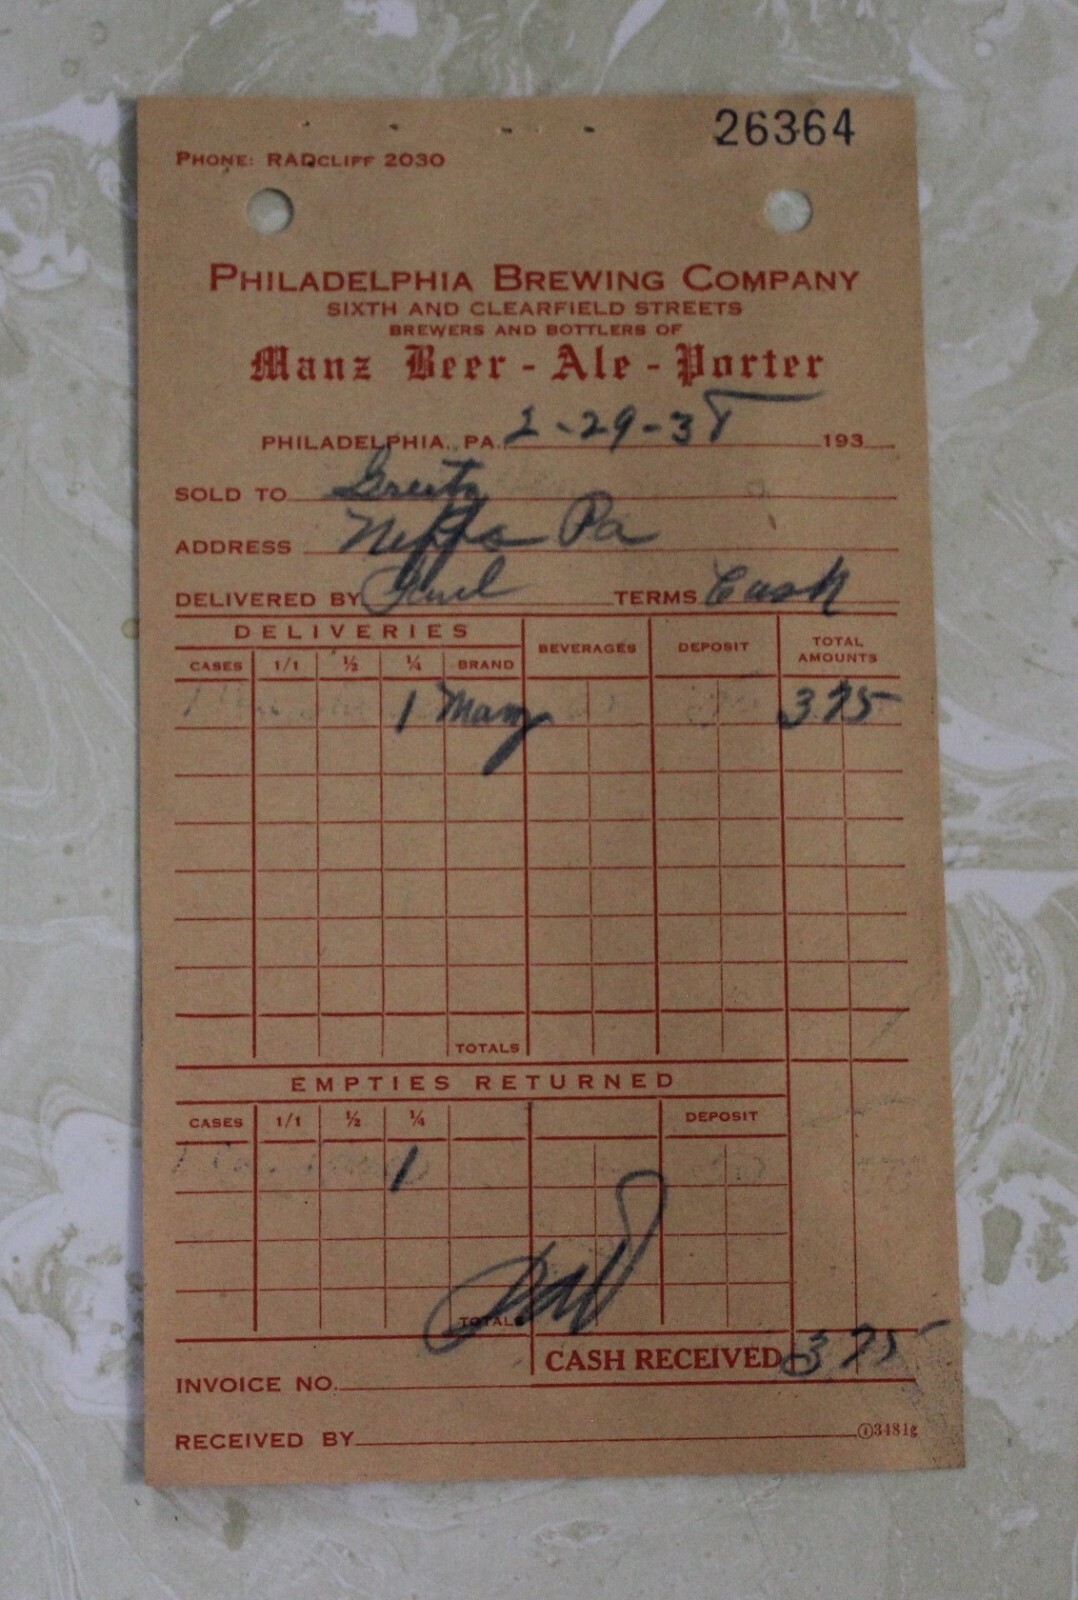 26364
PHONE: RADCLIFF 2030
PHILADELPHIA BREWING COMPANY
SIXTH AND CLEARFIELD STREETS
BREWERS AND BOTTLERS OF
Manz Beer - Ale - Porter
PHILADELPHIA, PA. 2-29-38 193
SOLD TO
ADDRESS Pa
DELIVERED BY TERMS Cash
DELIVERIES BEVERAGES DEPOSIT TOTAL AMOUNTS
CASES 1/1 ½ ¼ BRAND
1 Manz 3 75
TOTALS
EMPTIES RETURNED
CASES 1/1 ½ ¼ DEPOSIT
1
TOTALS
CASH RECEIVED 3 75
INVOICE NO.
RECEIVED BY
3481g